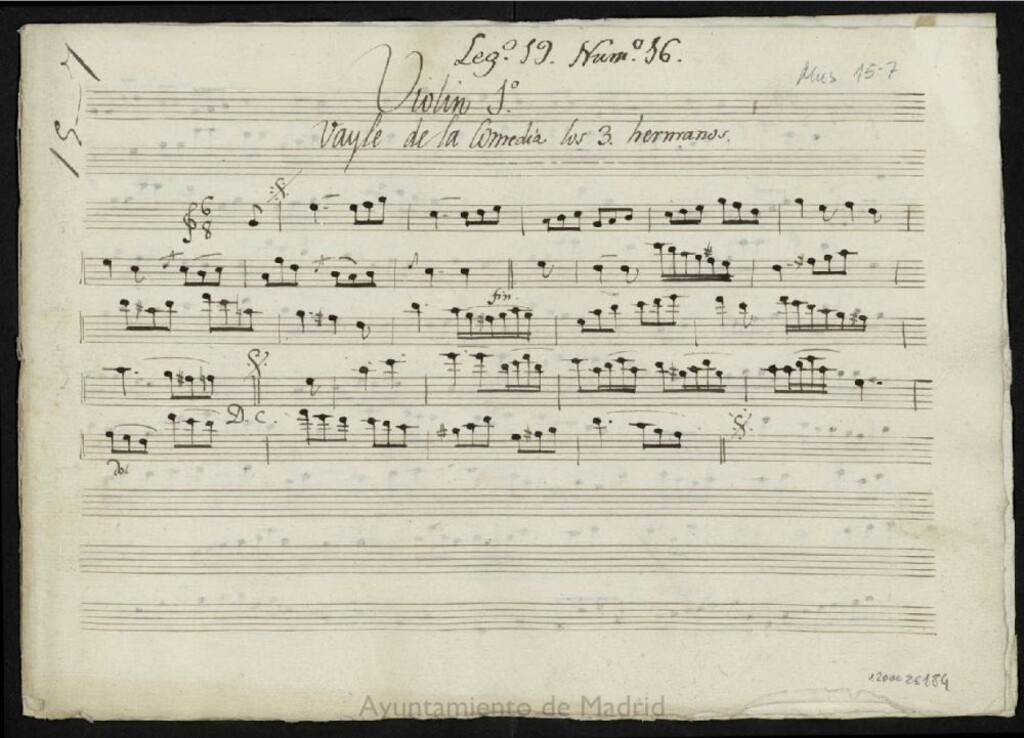 Leg.º 19. Num.º 16.
Mus 15-7
15-7
Violin 1.º
Vayle de la Comedia los 3. hermanos.
6
8
fin.
D.C.
dol
Ayuntamiento de Madrid